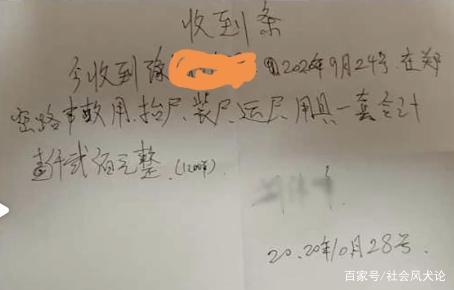 收到条
今收到豫 2020年9月24号在郑
密路事故用.抬尸.装尸.运尸.用具一套合计
壹仟贰佰元整.(1200)
2020年10月28号.
百家号/社会风犬论